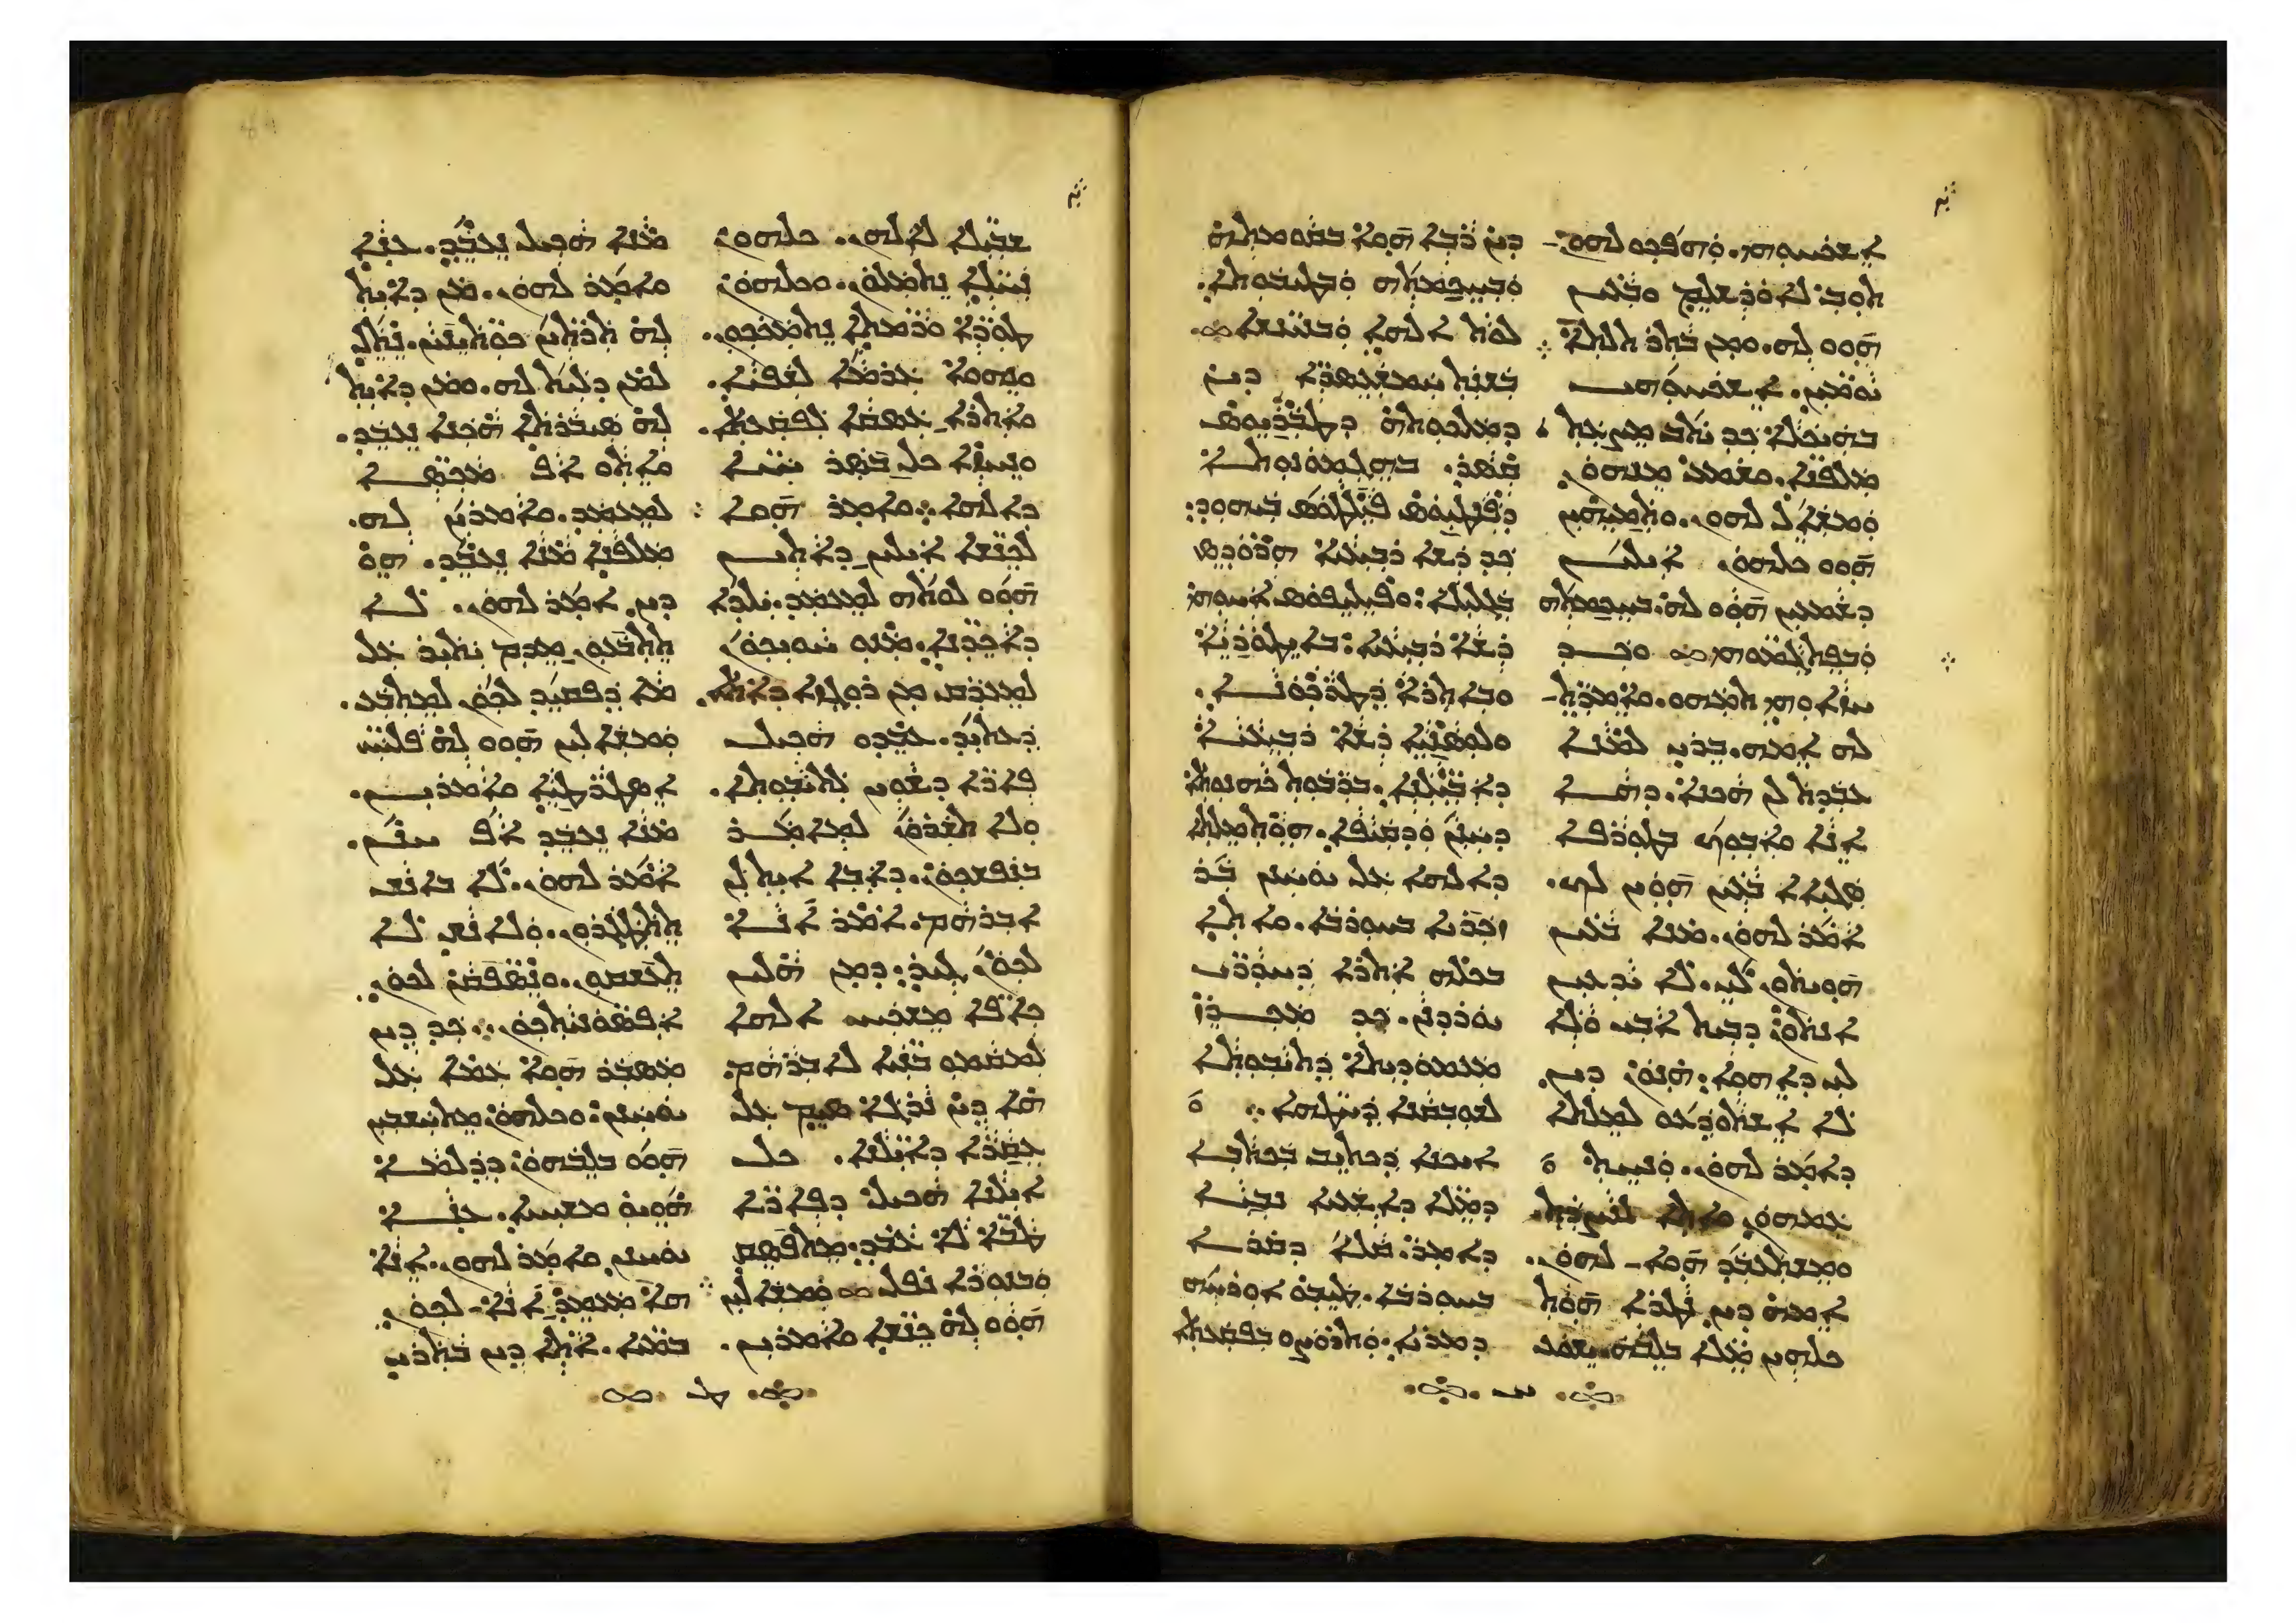 ܐܫܟܚܘܗܝ. ܘܗܦܟܘ ܠܗܘܢ
ܬܘܒ ܠܐܘܪܫܠܡ ܘܒܥܝܢ
ܗܘܘ ܠܗ. ܘܡܢ ܒܬܪ ܬܠܬܐ
ܝܘܡܝܢ. ܐܫܟܚܘܗܝ
ܒܗܝܟܠܐ ܟܕ ܝܬܒ ܡܨܥܬ
ܡܠܦܢܐ. ܘܫܡܥ ܡܢܗܘܢ.
ܘܡܫܐܠ ܠܗܘܢ. ܘܬܡܝܗܝܢ
ܗܘܘ ܟܠܗܘܢ ܐܝܠܝܢ
ܕܫܡܥܝܢ ܗܘܘ ܠܗ. ܒܚܟܡܬܗ
ܘܒܦܬܓܡܘܗܝ ܘܟܕ
ܚܙܐܘܗܝ ܬܡܗܘ. ܘܐܡܪܬ
ܠܗ ܐܡܗ. ܒܪܝ ܠܡܢܐ
ܥܒܕܬ ܠܢ ܗܟܢܐ. ܕܗܐ
ܐܢܐ ܘܐܒܘܟ ܒܛܘܪܦܐ
ܣܓܝܐܐ ܒܥܝܢ ܗܘܝܢ ܠܟ.
ܐܡܪ ܠܗܘܢ. ܡܢܐ ܒܥܝܢ
ܗܘܝܬܘܢ ܠܝ. ܠܐ ܝܕܥܝܢ
ܐܢܬܘܢ ܕܒܝܬ ܐܒܝ ܘܠܐ
ܠܝ ܕܐܗܘܐ. ܗܢܘܢ ܕܝܢ
ܠܐ ܐܫܬܘܕܥܘ ܠܡܠܬܐ
ܕܐܡܪ ܠܗܘܢ. ܘܢܚܬ
ܥܡܗܘܢ ܘܐܬܐ ܠܢܨܪܬ.
ܘܡܫܬܥܒܕ ܗܘܐ ܠܗܘܢ.
ܐܡܗ ܕܝܢ ܢܛܪܐ ܗܘܬ
ܟܠܗܝܢ ܡܠܐ ܒܠܒܗ ܝܫܘܥ
ܕܝܢ ܪܒܐ ܗܘܐ ܒܩܘܡܬܗ
ܘܒܚܟܡܬܗ ܘܒܛܝܒܘܬܐ.
ܠܘܬ ܐܠܗܐ ܘܒܢܝܢܫܐ
ܒܫܢܬ ܚܡܫܥܣܪܐ ܕܝܢ
ܕܡܠܟܘܬܗ ܕܛܒܪܝܘܣ
ܩܣܪ. ܒܗܓܡܘܢܘܬܐ
ܕܦܢܛܝܘܣ ܦܝܠܛܘܣ ܒܝܗܘܕ.
ܟܕ ܪܫܐ ܪܒܝܥܝܐ ܗܪܘܕܣ
ܒܓܠܝܠܐ. ܘܦܝܠܝܦܘܣ ܐܚܘܗܝ
ܪܫܐ ܪܒܝܥܝܐ. ܒܐܝܛܘܪܝܐ
ܘܒܐܬܪܐ ܕܛܪܟܘܢܐ.
ܘܠܘܣܢܝܐ ܪܫܐ ܪܒܝܥܝܐ
ܕܐܒܝܠܝܢܐ. ܒܪܒܘܬ ܟܗܢܘܬܐ
ܕܚܢܢ ܘܕܩܝܦܐ. ܗܘܬ ܡܠܬܐ
ܕܐܠܗܐ ܥܠ ܝܘܚܢܢ ܒܪ
ܙܟܪܝܐ ܒܚܘܪܒܐ. ܘܐܬܐ
ܒܟܠܗ ܐܬܪܐ ܕܚܕܪܝ
ܝܘܪܕܢܢ. ܟܕ ܡܟܪܙ
ܡܥܡܘܕܝܬܐ ܕܬܝܒܘܬܐ
ܠܫܘܒܩܢܐ ܕܚܛܗܐ.
ܐܝܟܢܐ ܕܟܬܝܒ ܒܟܬܒܐ
ܕܡܠܐ ܕܐܫܥܝܐ ܢܒܝܐ
ܕܐܡܪ. ܩܠܐ ܕܩܪܐ
ܒܚܘܪܒܐ. ܛܝܒܘ ܐܘܪܚܗ
ܕܡܪܝܐ. ܘܬܪܘܨܘ ܒܦܩܥܬܐ
ܫܒܝܠܐ ܠܐܠܗܢ. ܟܠܗܘܢ
ܢܚܠܐ ܢܬܡܠܘܢ. ܘܟܠܗܘܢ
ܛܘܪܐ ܘܪܡܬܐ ܢܬܡܟܟܘܢ.
ܘܢܗܘܐ ܥܪܡܐ ܠܫܦܝܐ.
ܘܐܬܪܐ ܥܣܩܐ ܠܦܩܥܬܐ.
ܘܢܚܙܐ ܟܠ ܒܣܪ ܚܝܐ
ܕܐܠܗܐ. ܘܐܡܪ ܗܘܐ
ܠܟܢܫܐ ܐܝܠܝܢ ܕܐܬܝܢ
ܗܘܘ ܠܘܬܗ ܠܡܥܡܕ. ܝܠܕܐ
ܕܐܟܕܢܐ. ܡܢܘ ܚܘܝܟܘܢ
ܠܡܥܪܩ ܡܢ ܪܘܓܙܐ
ܕܥܬܝܕ. ܥܒܕܘ ܗܟܝܠ
ܦܐܪܐ ܕܫܘܝܢ ܠܬܝܒܘܬܐ.
ܘܠܐ ܬܫܪܘܢ ܠܡܐܡܪ
ܒܢܦܫܟܘܢ. ܕܐܒܐ ܐܝܬ ܠܢ
ܐܒܪܗܡ. ܐܡܪ ܐܢܐ
ܠܟܘܢ ܓܝܪ. ܕܡܢ ܗܠܝܢ
ܟܐܦܐ ܡܫܟܚ ܐܠܗܐ
ܠܡܩܡܘ ܒܢܝܐ ܠܐܒܪܗܡ.
ܗܐ ܕܝܢ ܢܪܓܐ ܣܝܡ ܥܠ
ܥܩܪܐ ܕܐܝܠܢܐ. ܟܠ
ܐܝܠܢܐ ܗܟܝܠ ܕܦܐܪܐ
ܛܒܐ ܠܐ ܥܒܕ. ܡܬܦܣܩ
ܘܒܢܘܪܐ ܢܦܠ ܘܡܫܐܠܝܢ
ܗܘܘ ܠܗ ܟܢܫܐ ܘܐܡܪܝܢ.
ܡܢܐ ܗܟܝܠ ܢܥܒܕ. ܥܢܐ
ܘܐܡܪ ܠܗܘܢ. ܡܢ ܕܐܝܬ
ܠܗ ܬܪܬܝܢ ܟܘܬܝܢܝܢ. ܢܬܠ
ܠܡܢ ܕܠܝܬ ܠܗ. ܘܡܢ ܕܐܝܬ
ܠܗ ܣܝܒܪܬܐ ܗܟܢܐ ܢܥܒܕ.
ܘܐܬܘ ܐܦ ܡܟܣܐ
ܠܡܥܡܕ. ܘܐܡܪܝܢ ܠܗ.
ܡܠܦܢܐ ܡܢܐ ܢܥܒܕ. ܗܘ
ܕܝܢ ܐܡܪ ܠܗܘܢ. ܠܐ
ܬܬܒܥܘܢ ܡܕܡ ܝܬܝܪ ܥܠ
ܡܐ ܕܦܩܝܕ ܠܟܘܢ ܠܡܬܒܥ.
ܘܡܫܐܠܝܢ ܗܘܘ ܠܗ ܦܠܚܝ
ܐܣܛܪܛܝܐ ܘܐܡܪܝܢ.
ܡܢܐ ܢܥܒܕ ܐܦ ܚܢܢ.
ܐܡܪ ܠܗܘܢ. ܠܐ ܒܐܢܫ
ܘܠܐܢܫ ܠܐ
ܬܥܫܩܘܢ. ܘܢܣܦܩܢ ܠܟܘܢ
ܐܦܣܘܢܝܬܟܘܢ. ܟܕ ܕܝܢ
ܡܣܒܪ ܗܘܐ ܥܡܐ ܥܠ
ܝܘܚܢܢ. ܘܟܠܗܘܢ ܡܬܚܫܒܝܢ
ܗܘܘ ܒܠܒܗܘܢ ܕܕܠܡܐ
ܗܘܝܘ ܡܫܝܚܐ. ܥܢܐ
ܝܘܚܢܢ ܘܐܡܪ ܠܗܘܢ. ܐܢܐ
ܗܐ ܡܥܡܕ ܐܢܐ ܠܟܘܢ
ܒܡܝܐ. ܐܬܐ ܕܝܢ ܒܬܪܝ